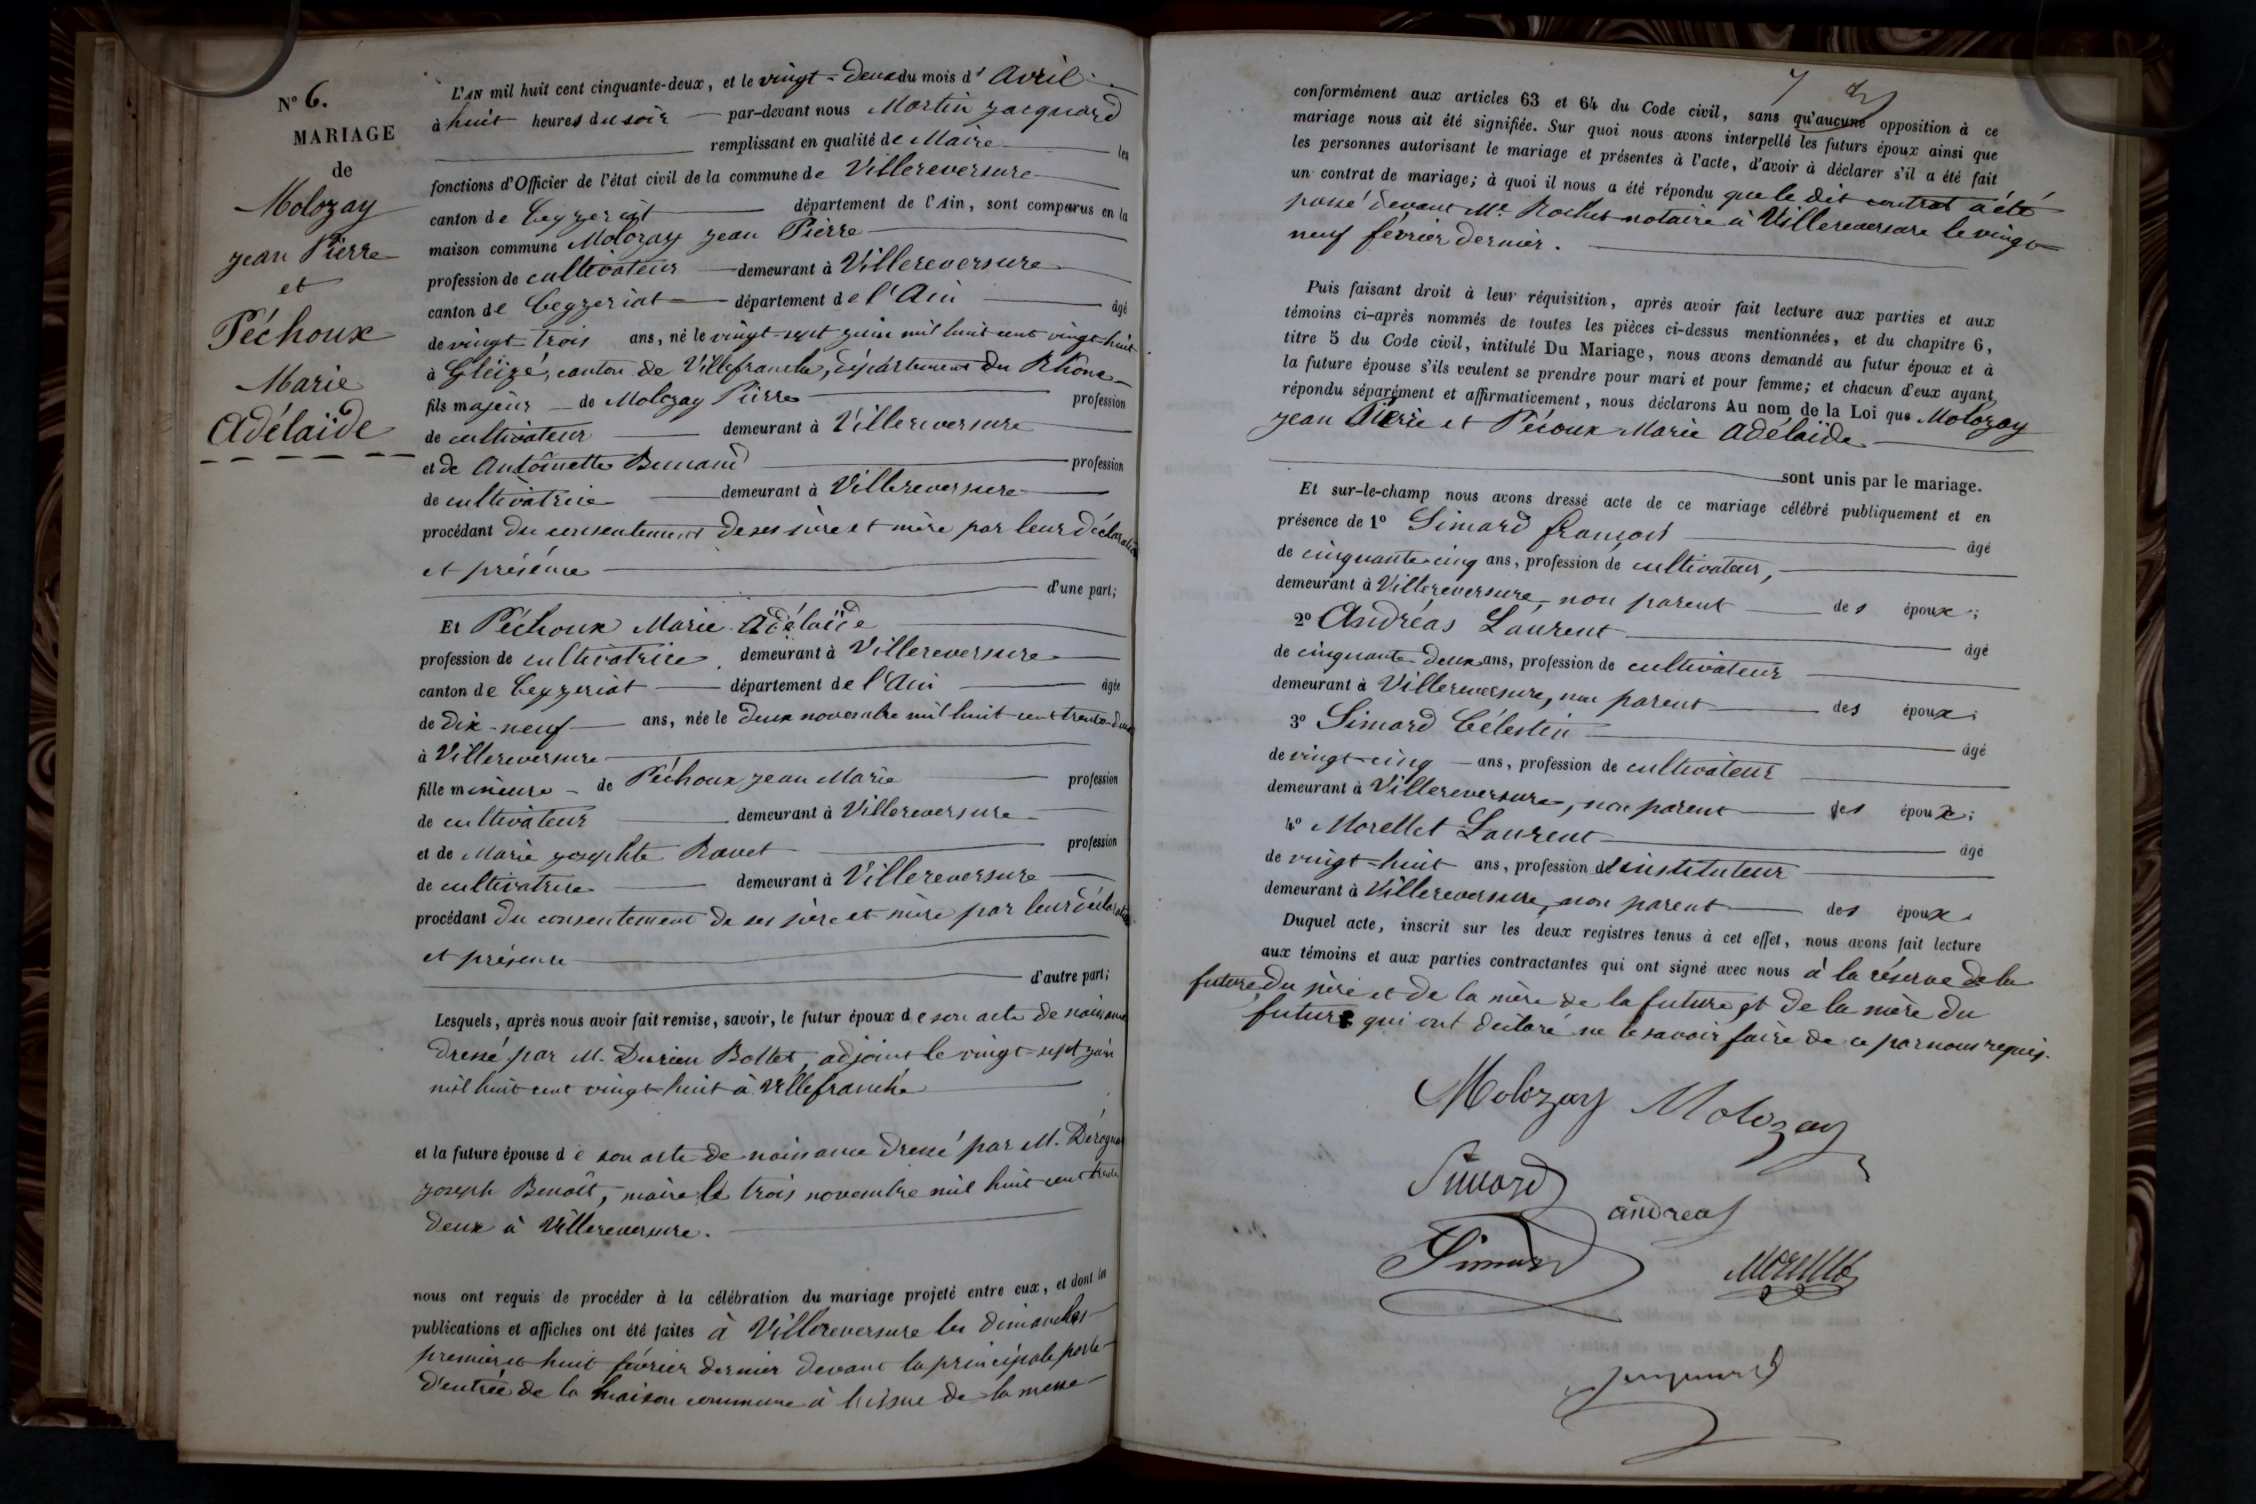 N° 6.
MARIAGE
de
Molozay
jean Pierre
et
Péchoux
Marie
Adélaïde
L'AN mil huit cent cinquante-deux, et le vingt-deux du mois d' Avril
à huit heures du soir par-devant nous Martin jacquard
remplissant en qualité de Maire les
fonctions d'Officier de l'état civil de la commune de Villereversure
canton de Ceyzeriat département de l'Ain, sont comparus en la
maison commune Molozay jean Pierre
profession de cultivateur demeurant à Villereversure
canton de Ceyzeriat département de l'Ain âgé
de vingt-trois ans, né le vingt-sept juin mil huit cent vingt-huit
à Gleizé, canton de Villefranche, département du Rhône
fils majeur de Molozay Pierre profession
de cultivateur demeurant à Villereversure
et de Antoinette profession
de cultivatrice demeurant à Villereversure
procédant du consentement de ses père et mère par leur déclaration
et présence
d'une part;
Et Péchoux Marie Adélaïde
profession de cultivatrice demeurant à Villereversure
canton de Ceyzeriat département de l'Ain âgée
de dix-neuf ans, née le deux novembre mil huit cent trente-deux
à Villereversure
fille mineure de Péchoux jean Marie profession
de cultivateur demeurant à Villereversure
et de Marie josephte Ravet profession
de cultivatrice demeurant à Villereversure
procédant du consentement de ses père et mère par leur déclaration
et présence
d'autre part;
Lesquels, après nous avoir fait remise, savoir, le futur époux de son acte de naissance
dressé par M. Durieu Bottet, adjoint le vingt-sept juin
mil huit cent vingt-huit à Villefranche
et la future épouse de son acte de naissance dressé par M.
joseph Benoît, maire le trois novembre mil huit cent trente
deux à Villereversure.
nous ont requis de procéder à la célébration du mariage projeté entre eux, et dont les
publications et affiches ont été faites à Villereversure les dimanches
premier et huit février dernier devant la principale porte
d'entrée de la maison commune à l'issue de la messe
7
conformément aux articles 63 et 64 du Code civil, sans qu'aucune opposition à ce
mariage nous ait été signifiée. Sur quoi nous avons interpellé les futurs époux ainsi que
les personnes autorisant le mariage et présentes à l'acte, d'avoir à déclarer s'il a été fait
un contrat de mariage; à quoi il nous a été répondu que le dit contrat a été
passé devant Me. Rochet notaire à Villereversure le vingt
neuf février dernier.
Puis faisant droit à leur réquisition, après avoir fait lecture aux parties et aux
témoins ci-après nommés de toutes les pièces ci-dessus mentionnées, et du chapitre 6,
titre 5 du Code civil, intitulé Du Mariage, nous avons demandé au futur époux et à
la future épouse s'ils veulent se prendre pour mari et pour femme; et chacun d'eux ayant
répondu séparément et affirmativement, nous déclarons Au nom de la Loi que Molozay
jean Pierre et Pécoux Marie Adélaïde
sont unis par le mariage.
Et sur-le-champ nous avons dressé acte de ce mariage célébré publiquement et en
présence de 1° Simard françois âgé
de cinquante-cinq ans, profession de cultivateur,
demeurant à Villereversure, non parent des époux;
2° Andréas Laurent âgé
de cinquante-deux ans, profession de cultivateur
demeurant à Villereversure, non parent des époux;
3° Simard Célestin âgé
de vingt-cinq ans, profession de cultivateur
demeurant à Villereversure, non parent des époux;
4° Morellet Laurent âgé
de vingt-huit ans, profession d'instituteur
demeurant à Villereversure, non parent des époux.
Duquel acte, inscrit sur les deux registres tenus à cet effet, nous avons fait lecture
aux témoins et aux parties contractantes qui ont signé avec nous à la réserve de la
future du père et de la mère de la future et de la mère du
futur qui ont déclaré ne le savoir faire de ce par nous requis.
Molozay Molozay
Simard
andreas
Simard
Morellet
Jacquard